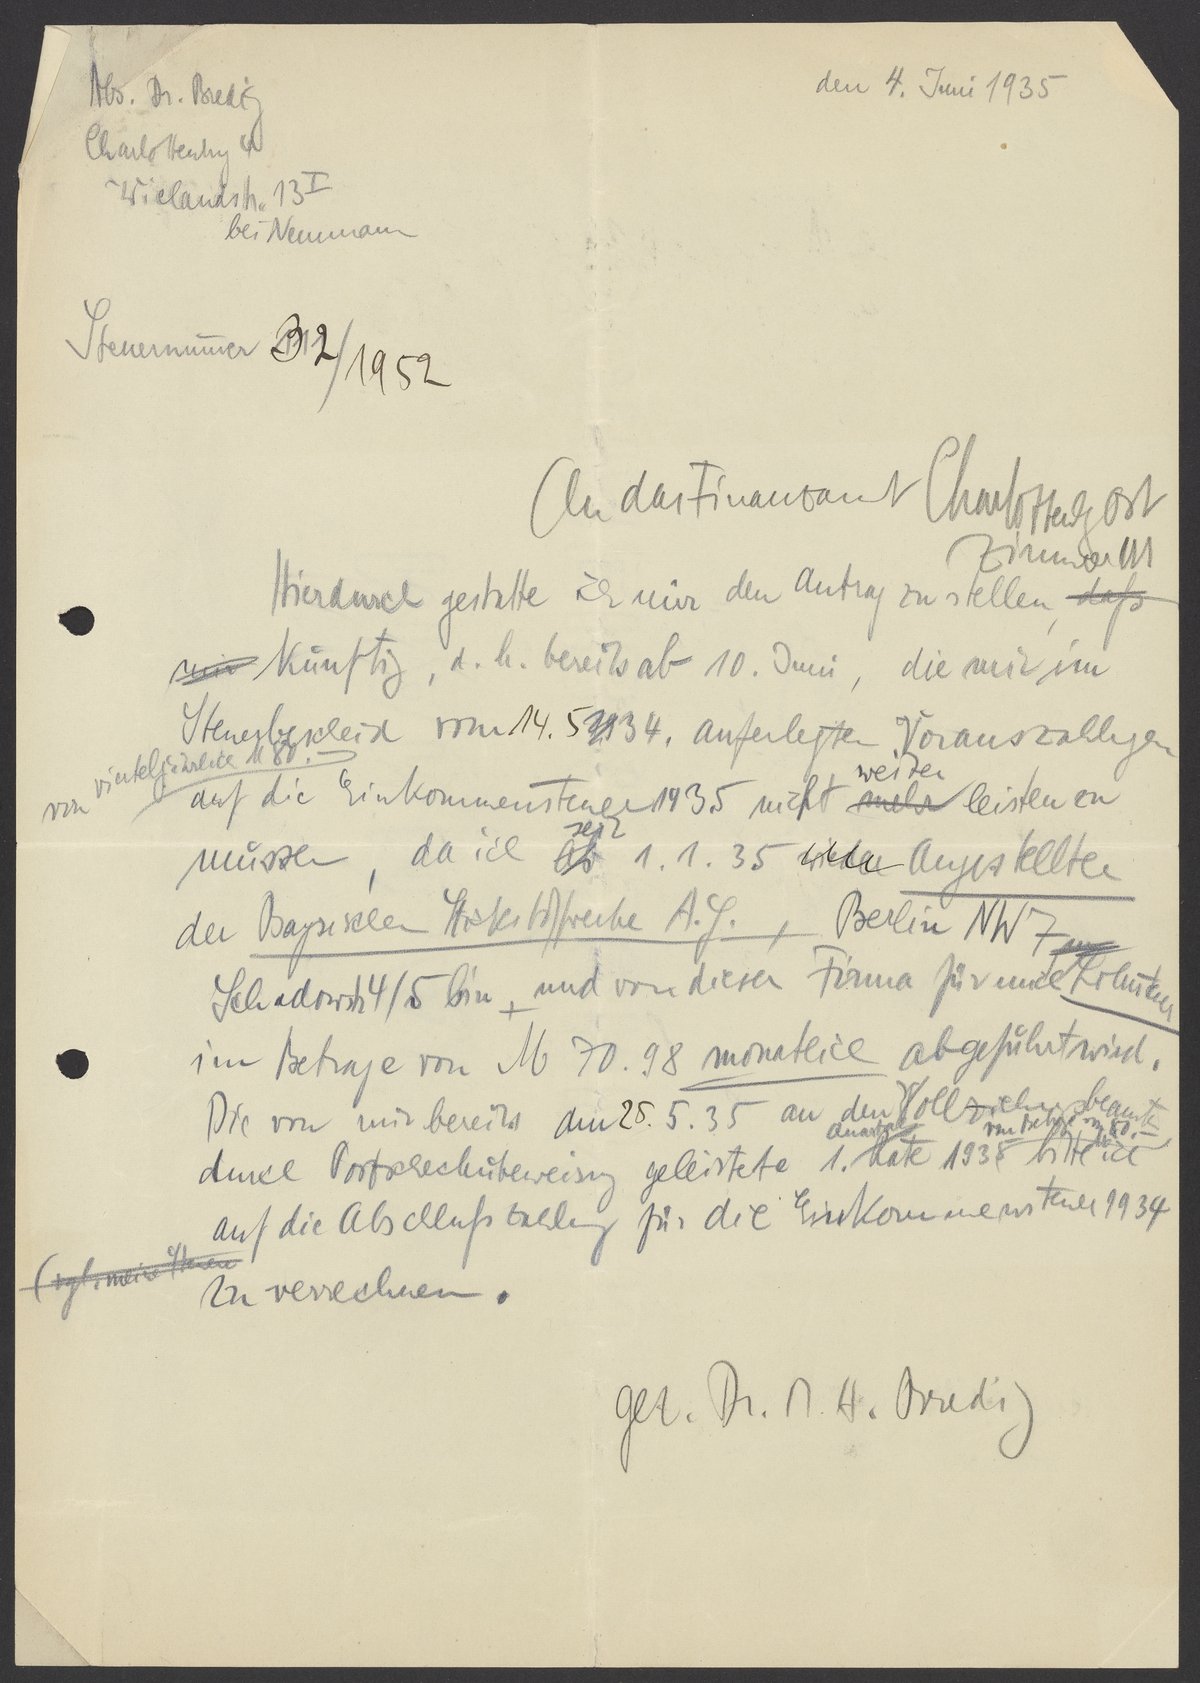 Abs. Dr. Bredig
den 4. Juni 1935
Charlottenbg 4
Wielandstr. 13 I
bei Neumann
Steuernummer 32/1952
An das Finanzamt Charlottenbg Ost
Zimmer 111
Hierdurch gestatte ich mir den Antrag zu stellen, daß
mir künftig, d. h. bereits ab 10. Juni, die mir im
Steuerbescheid vom 14. 5. 34. auferlegten Vorauszahlungen
von vierteljährlich M 80.–
auf die Einkommensteuer 1935 nicht mehr weiter leisten zu
müssen, da ich ab seit 1. 1. 35 Angestellter
der Bayrischen Stickstoffwerke A.G., Berlin NW 7
Schadowstr 4/5 bin, und von dieser Firma für mich Lohnsteuer
im Betrage von M 70.98 monatlich abgeführt wird.
Die von mir bereits am 25. 5. 35 an den Vollziehungsbeamten
durch Postscheckübeweisung geleistete 1. Rate Quartal 1935 im Betrage von 80.– bitte ich
auf die Abschlußzahlung für die Einkommensteuer 1934
(vgl. meine
zu verrechnen.
gez. Dr. M. A. Bredig